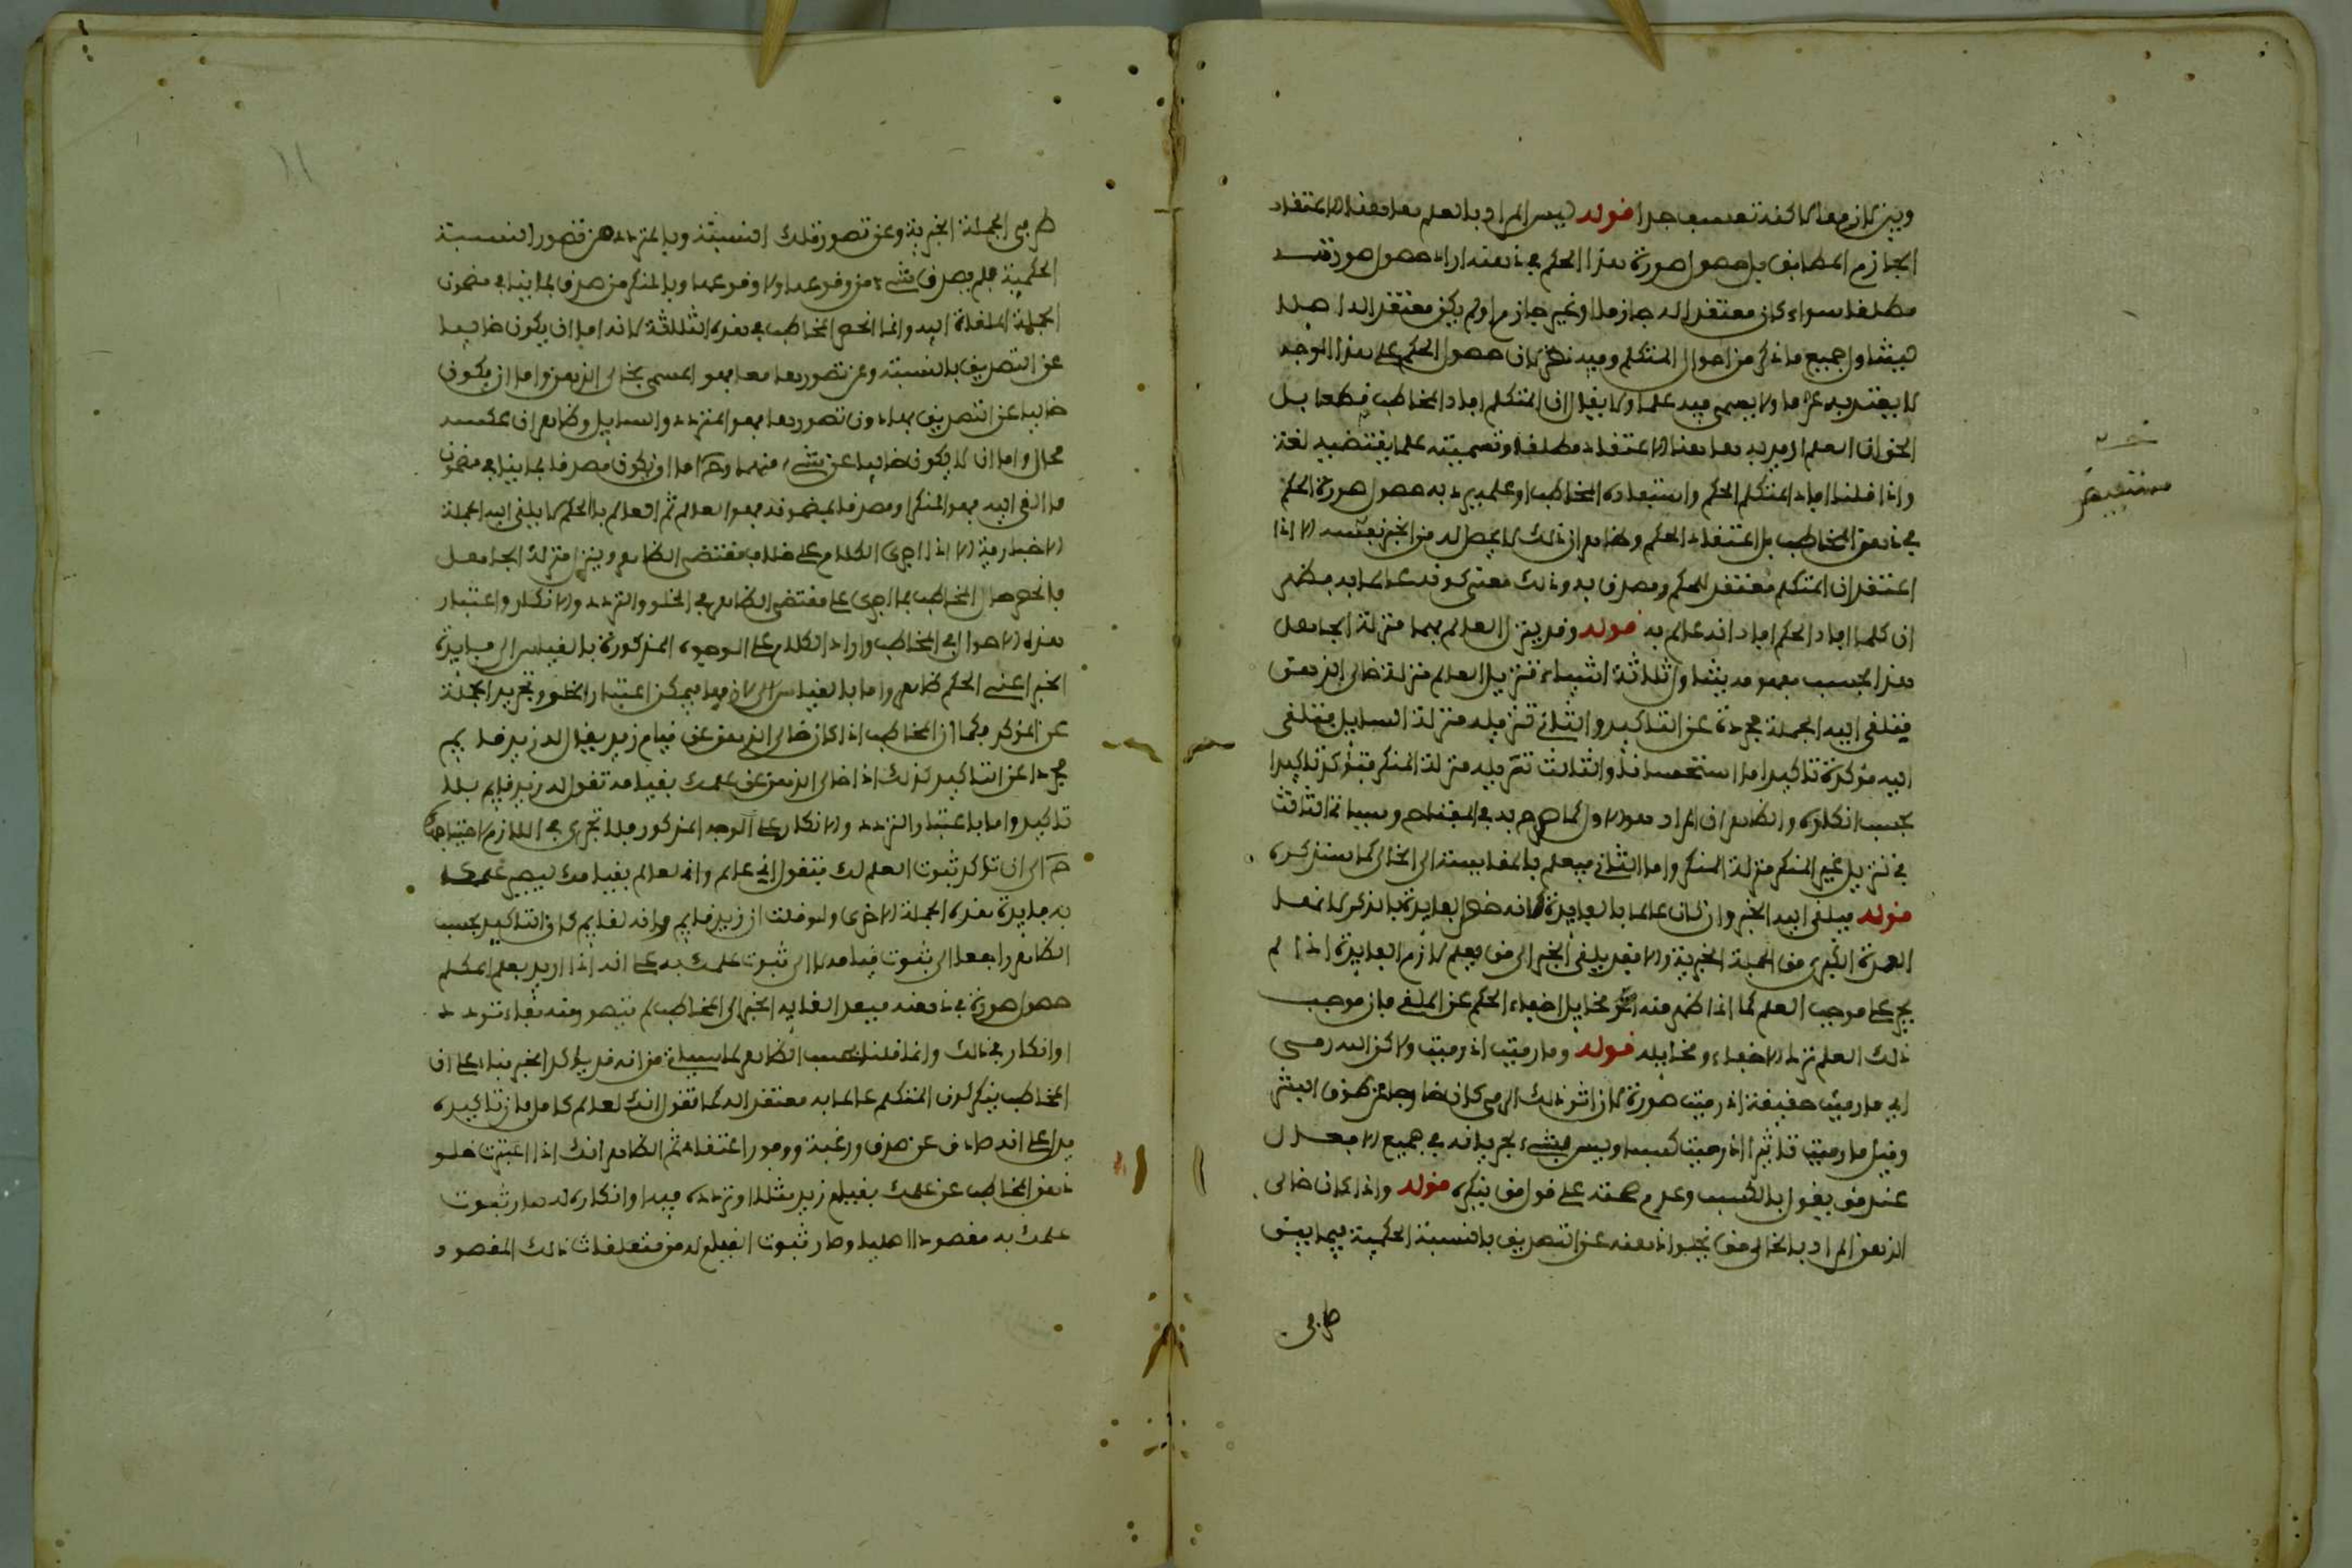 وبين لازم معا لاكنه تعسف جدا قوله ليس المراد بالعلم هاهنا الاعتقاد
الجازم المطابق بل حصول صورة هذا الحكم في ذهنه اراد حصول صورته
مطلقا سواء كان معتقدا له جازما او غير جازم او لم يكن معتقدا له اصلا
ليشاول جميع ما ذكر من احوال المتكلم وفيه نظر لان حصول الحكم على هذا الوجه
لا يعتد به عرفا ولا يسمى فيه علما ولا يقال ان المتكلم افاد المخاطب قطعا بل
الحق ان العلم اريد به هاهنا الاعتقاد مطلقا وتسميته علما يقتضيه لغة
واذا قلنا افاد المتكلم الحكم واستفاده المخاطب او علم يريد به حصول صورة الحكم
في ذهن المخاطب بل اعتقاد الحكم وظاهر ان ذلك لا يحصل له من الخبر نفسه الا اذا
اعتقد ان المتكلم معتقد للحكم ومصدق به وذلك معنى كونه عالما به فظهر
ان كلما افاد الحكم افاد انه عالم به قوله وقد ينزل العالم بهما منزلة الجاهل
هذا بحسب مفهومه يتناول ثلاثة اشياء تنزيل العالم منزلة خالي الذهن
فيلقى اليه الجملة مجردة عن التاكيد والثاني تنزيله منزلة السايل فيلقى
اليه مؤكدة تاكيدا ما استحسانا والثالث تنزيله منزلة المنكر فيؤكد تاكيدا
بحسب انكاره والظاهر ان المراد هو الاول كما صرح به في المفتاح وسياتي الثالث
في تنزيل غير المنكر منزلة المنكر واما الثاني فيعلم بالمقايسة الى الخالي كما سنذكره
قوله فيلقى اليه الخبر وان كان عالما بالفايدة كانه خص الفايدة بالذكر لانها
العمدة الكبرى من الجملة الخبرية والا فقد يلقى الخبر الى من يعلم لازم الفايدة اذا لم
يجر على موجب العلم كما اذا ظهر منه مخايل اخفاء الحكم عن الملقي فان موجب
ذلك العلم ترك الاخفاء ومخايله قوله وما رميت اذ رميت ولاكن الله رمى
اي ما رميت حقيقة اذ رميت صورة لان اثر ذلك الرمي كان خارجا عن طوق البشر
وقيل ما رميت تاثيرا اذ رميت كسبا وليس بشيء لجريانه في جميع الافعال
عند من يقول بالكسب وعدم صحته على قول من ينكره قوله واذا كان خالي
الذهن المراد بالخالي من يخلو ذهنه عن التصديق بالنسبة الحكمية فيما بين
طرفي
طرفي الجملة الخبرية وعن تصور تلك النسبة وبالمتردد من تصور النسبة
الحكمية فلم يصدق بشيء من وقوعها ولا وقوعها وبالمنكر من صدق بما ينافي مضمون
الجملة الملقاة اليه وانما انحصر المخاطب في هذه الثلاثة لانه اما ان يكون خاليا
عن التصديق بالنسبة وعن تصورها معا فهو المسمى بخالي الذهن واما ان يكون
خاليا عن التصديق بها دون تصورها فهو المتردد والسايل وظاهر ان عكسه
محال واما ان لا يكون خاليا عن شيء منهما وح اما ان يكون مصدقا بما ينافي مضمون
ما القي اليه فهو المنكر او مصدقا بمضمونه فهو العالم ثم العالم بالحكم لا يلقى اليه الجملة
الاخبارية الا اذا اجري الكلام على خلاف مقتضى الظاهر وينزل منزلة الجاهل
فانحصر حال المخاطب بما اجري على مقتضى الظاهر في الخلو والتردد والانكار واعتبار
هذه الاحوال في المخاطب وايراد الكلام على الوجوه المذكورة بالقياس الى فايدة
الخبر اعني الحكم ظاهر واما بالقياس الى لازمها فيمكن اعتبار الخلو وتجريد الجملة
عن المؤكد فكما ان المخاطب اذا كان خالي الذهن عن قيام زيد يقال له زيد قايم
مجردا عن التاكيد كذلك اذا خالي الذهن عن علمك بقيامه تقول له زيد قايم بلا
تاكيد واما باعتبار التردد والانكار على الوجه المذكور فلا تجري في اللازم لاحتياجك
ح الى ان تؤكد ثبوت العلم لك فتقول اني عالم وانه لعالم بقيامه ليصير
به فايدة هذه الجملة الاخرى ولو قلت ان زيد قايم وانه لقايم كان التاكيد بحسب
الظاهر راجعا الى ثبوت قيامه لا الى ثبوت علمك به على انه اذا اريد بعلم المتكلم
حصول صورة في ذهنه فبعد القايه الخبر الى المخاطب لم يتصور منه بقاء تردد
او انكار في ذلك وانما قلنا بحسب الظاهر لما سياتي من انه قد يؤكد الخبر بناء على ان
المخاطب ينكر كون المتكلم عالما به معتقدا له كما تقول انك لعالم كامل فان تاكيده
يدل على انه صادق عن صدق ورغبة ووفور اعتقاد ثم الظاهر انك اذا اعتبرت خلو
ذهن المخاطب عن علمك بقيام زيد مثلا او تردده فيه او انكاره له صار ثبوت
علمك به مقصودا اصليا وصار ثبوت القيام له من متعلقات ذلك المقصود